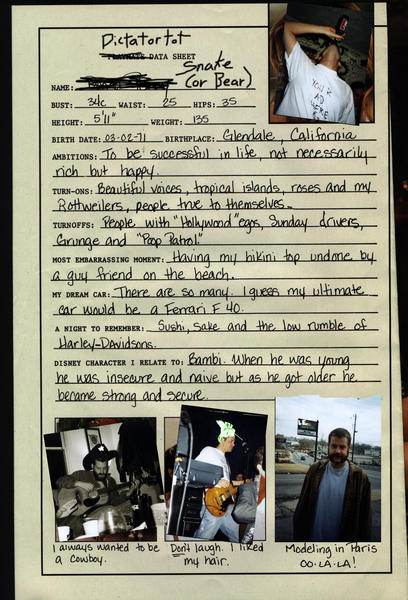 Dictatortot
DATA SHEET
Snake
(or Bear)
NAME:
BUST: 34c WAIST: 25 HIPS: 35
HEIGHT: 5'11" WEIGHT: 135
BIRTH DATE: 03-02-71 BIRTHPLACE: Glendale, California
AMBITIONS: To be successful in life, not necessarily
rich but happy.
TURN-ONS: Beautiful voices, tropical islands, roses and my
Rottweilers, people true to themselves.
TURNOFFS: People with "Hollywood" egos, Sunday drivers,
Grunge and "Poop Patrol."
MOST EMBARRASSING MOMENT: Having my bikini top undone by
a guy friend on the beach.
MY DREAM CAR: There are so many. I guess my ultimate
car would be a Ferrari F 40.
A NIGHT TO REMEMBER: Sushi, sake and the low rumble of
Harley-Davidsons.
DISNEY CHARACTER I RELATE TO: Bambi. When he was young
he was insecure and naive but as he got older he
became strong and secure.
I always wanted to be
a cowboy.
Don't laugh. I liked
my hair.
Modeling in Paris
OO-LA-LA!